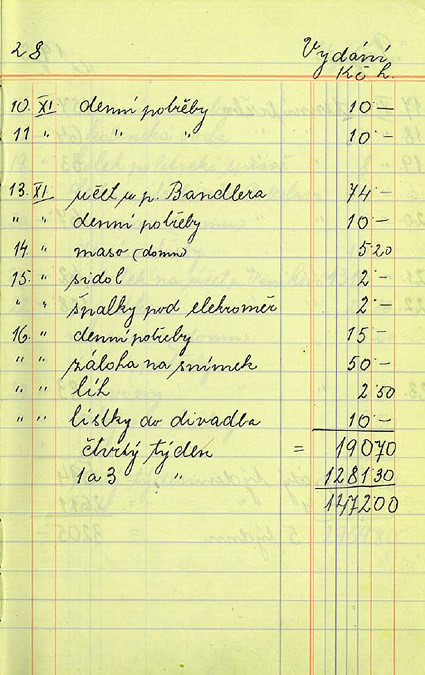 28 Vydání
Kč h.
10. XI. denní potřeby 10 —
11 " " " 10 —
13. XI účet u p. Bandlera 74 —
" " denní potřeby 10 —
14. " maso (domu) 5 20
15. " sidol 2 —
" " špalky pod elekroměr 2 —
16. " denní potřeby 15 —
" " záloha na snímek 50 —
" " líh 2 50
" " lístky do divadla 10 —
čtvrtý týden = 190 70
1 a 3 " 1281 30
1472 00